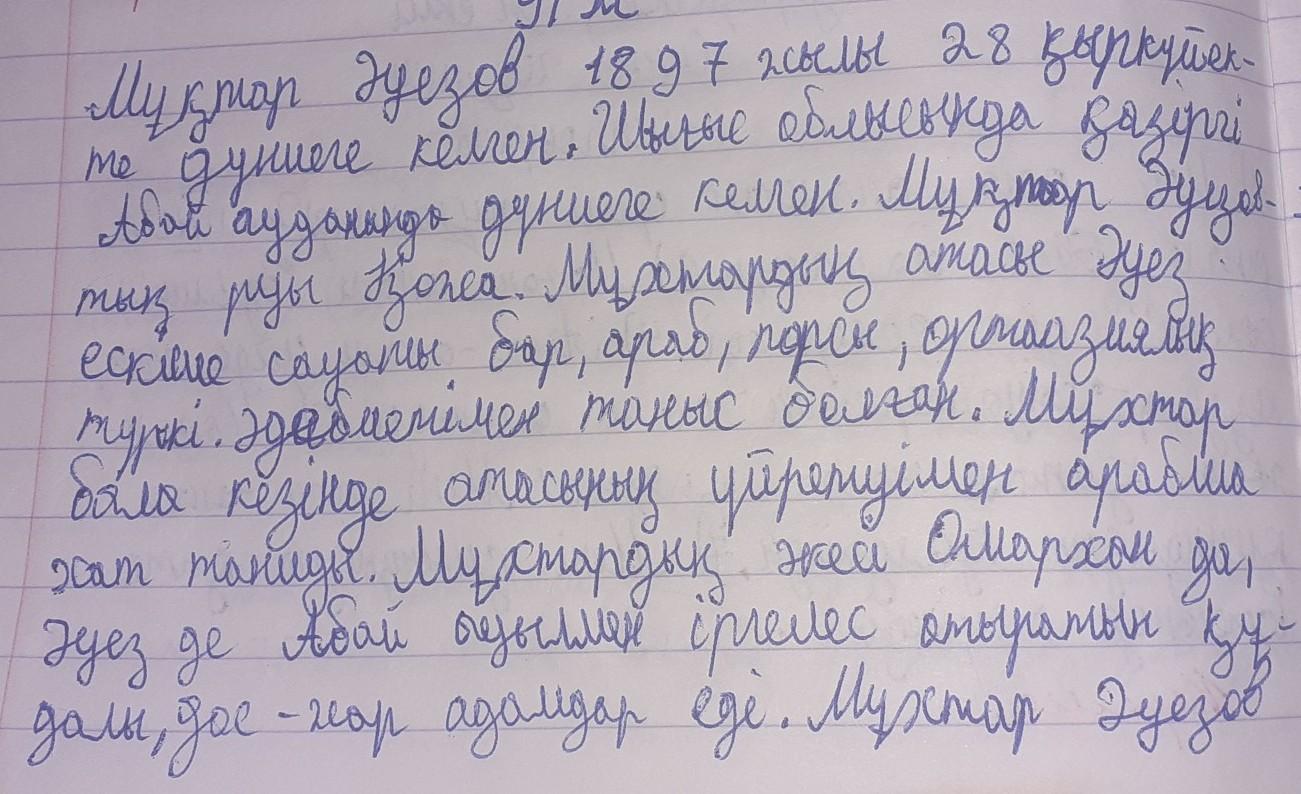 Мұқтар Әуезов 1897 жылы 28 қыркүйек-
те дүниеге келген. Шығыс облысында қазіргі
Абай ауданында дүниеге келген. Мұқтар Әуезов-
тың руы Қожа. Мұхтардың атасы Әуез
ескіше сауаты бар, араб, парсы, ортаазиялық
түркі. әдебиетімен таныс болған. Мұхтар
бала кезінде атасының үйретуімен арабша
хат таниды. Мұхтардың әкесі Омархан да,
Әуез де Абай ауылмен іргелес отыратын құ-
далы, дос-жар адамдар еді. Мұхтар Әуезов